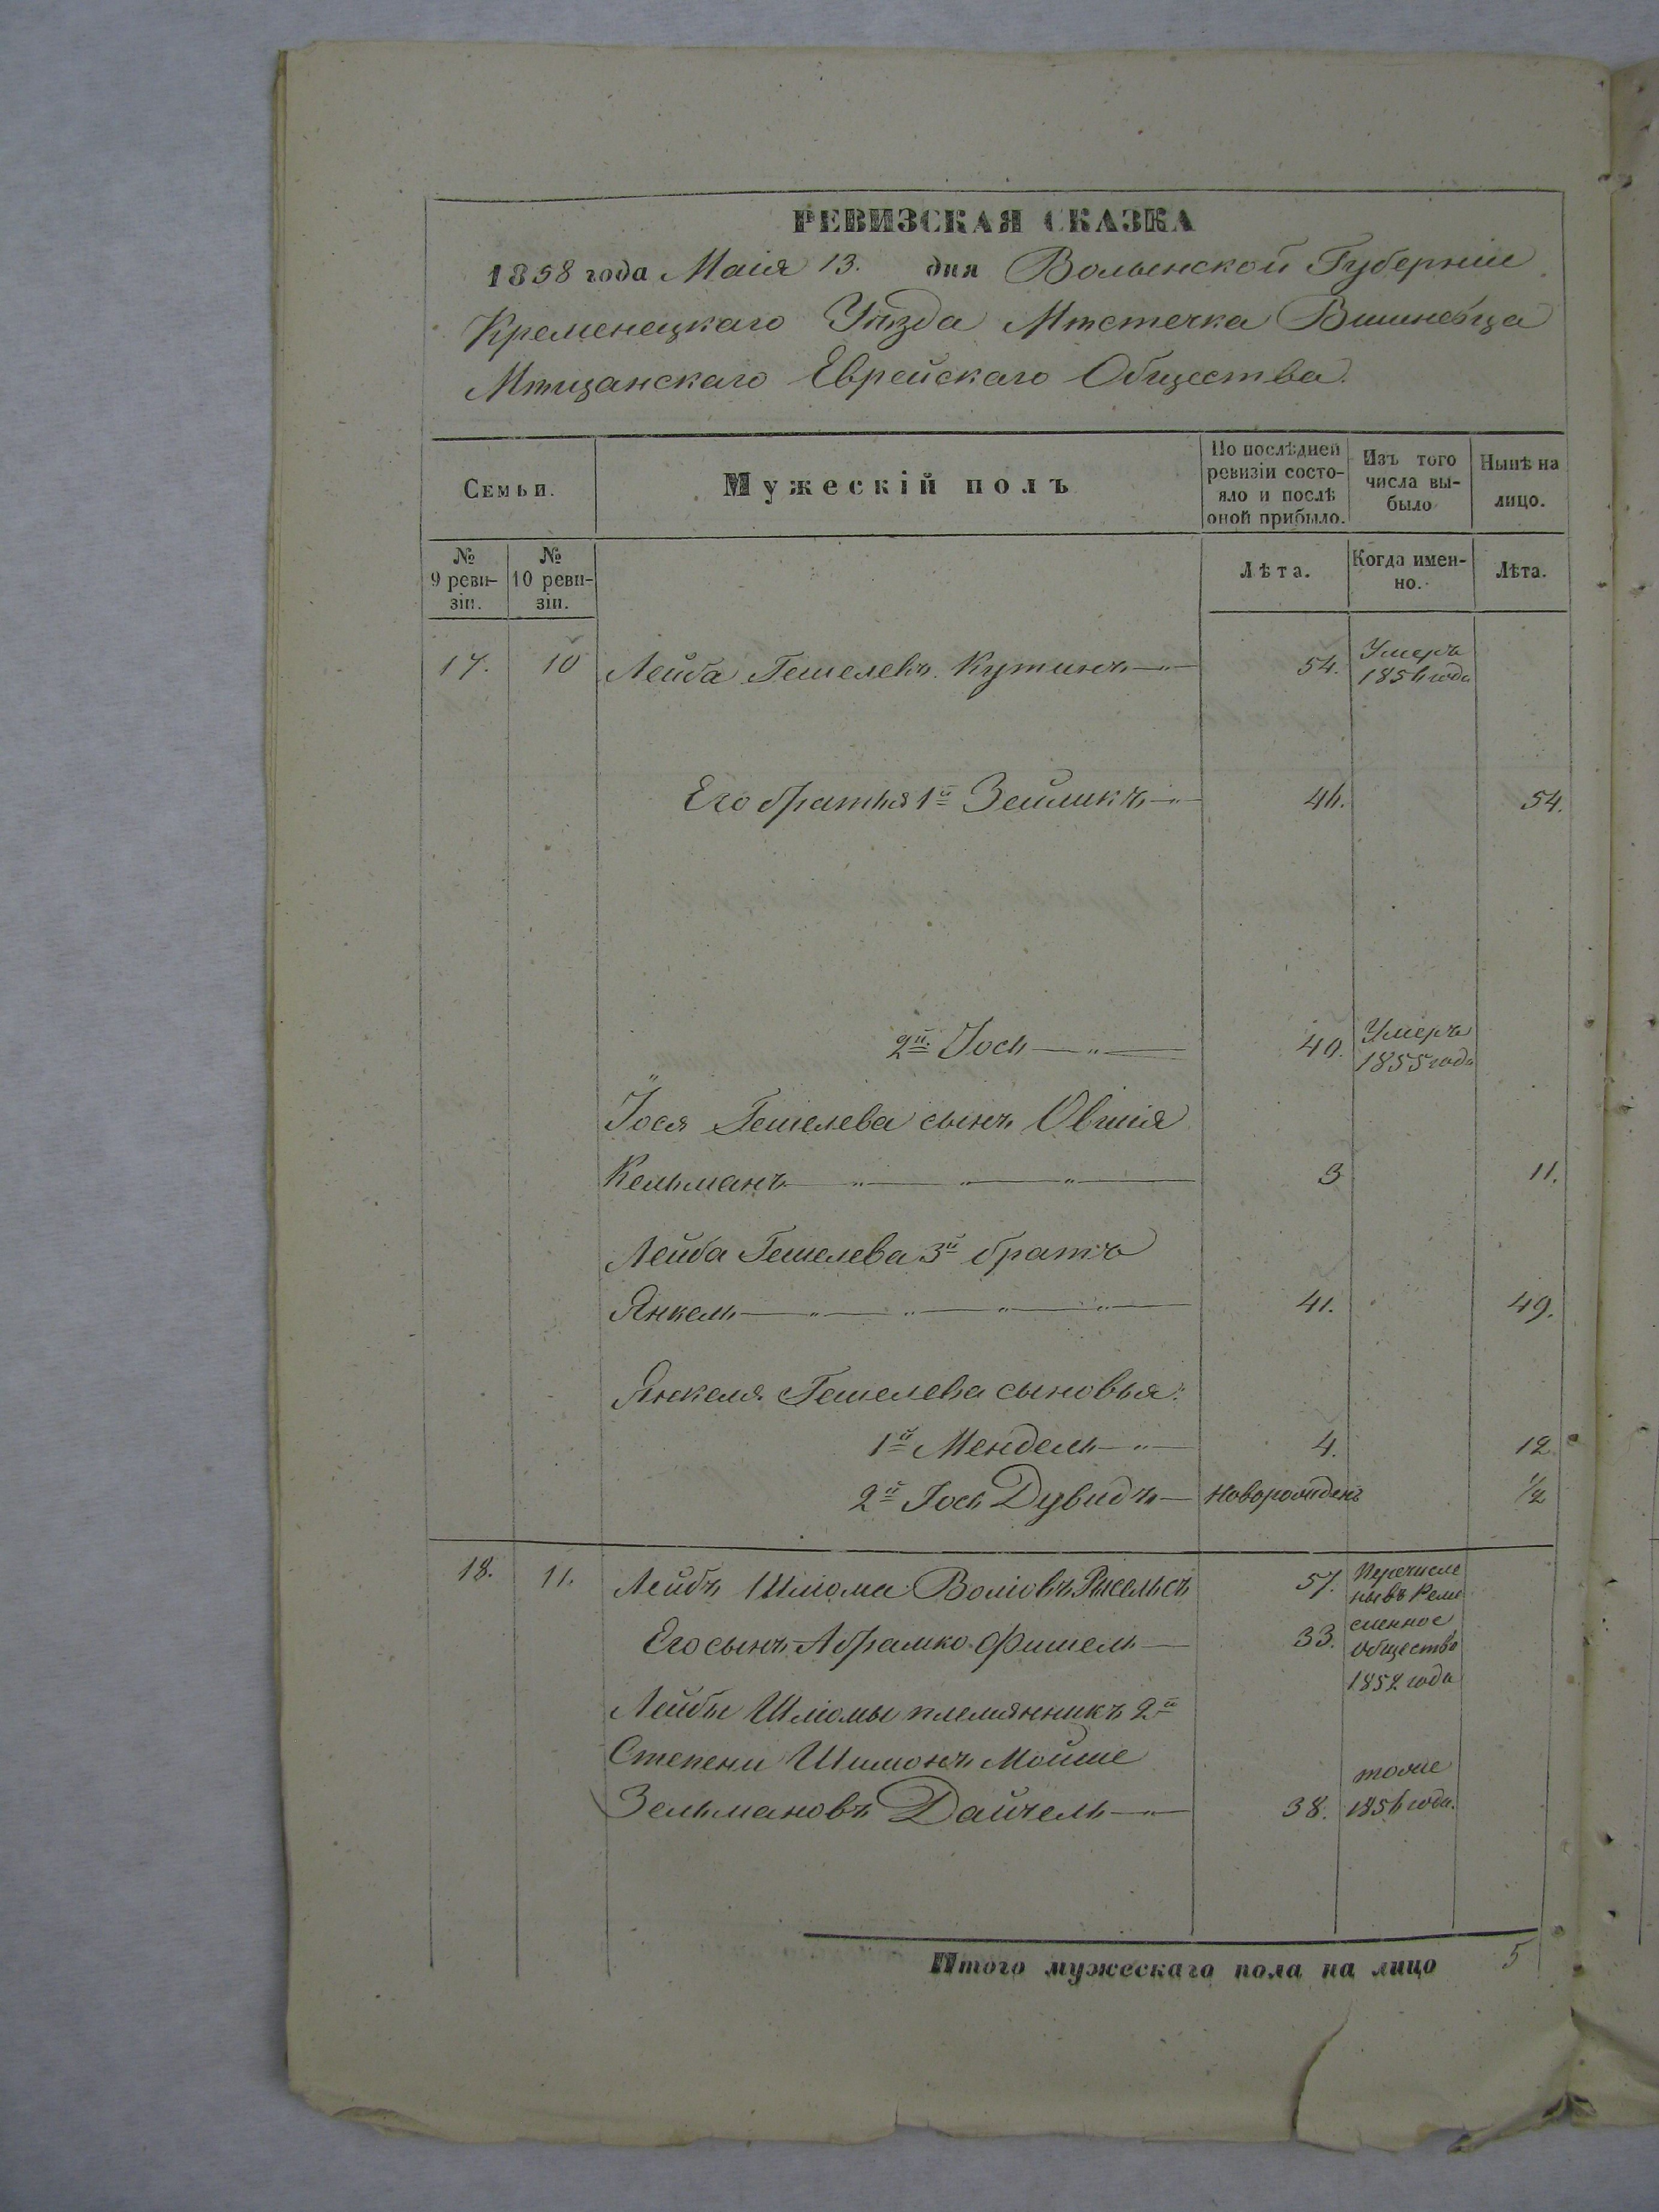 РЕВИЗСКАЯ СКАЗКА
1858 года Маія 13. дня Волынской Губерніи
Кременецкаго Уѣзда Мѣстечка Вишневца
Мѣщанскаго Еврейскаго Общества.
Семьи.
Мужескій полъ
По послѣдней ревизіи состо-
яло и послѣ
оной прибыло.
Изъ того
числа вы-
было
Нынѣ на
лицо.
№
9 реви-
зіи.
№
10 реви-
зіи.
Лѣта.
Когда имен-
но.
Лѣта.
17. 10 Лейба Гешелевъ Кутинъ 54. Умеръ
1856 года
Его братья 1й Зейликъ 46. 54.
2й Іось 40. Умеръ
1855 года
Іося Гешелева сынъ Овшія
Кельманъ 3 11.
Лейба Гешелева 3й братъ
Янкель 41. 49.
Янкеля Гешелева сыновья:
1й Мендель 4. 12
2й Іось Дувидъ новорожденъ 1/2
18. 11. Лейбъ Шліома Воліовъ 57. Перечисле
ны въ Реме
сленное
Общество
1852 года
Его сынъ Абрамко Фишель 33.
Лейбы Шліомы племянникъ 2й
Степени Шимонъ Мойше
Зельмановъ Дайчель 38. тоже
1856 года.
Итого мужескаго пола на лицо 5